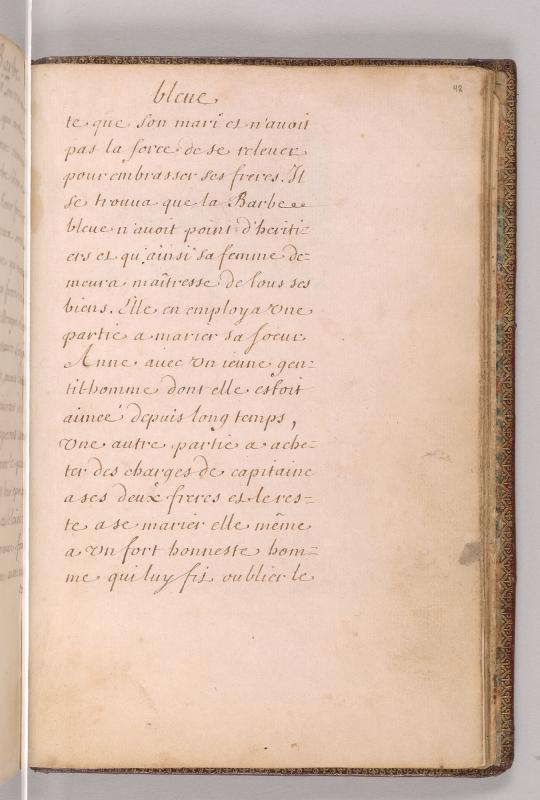 48
bleue
te que son mari et n'avoit
pas la force de se relever
pour embrasser ses freres. Il
se trouva que la Barbe
bleue n'avoit point d'heriti=
ers et qu'ainsi sa femme de=
meura maîtresse de tous ses
biens. Elle en employa une
partie a marier sa soeur
Anne avec un ieune gen=
tilhomme dont elle estoit
aimeé depuis long temps,
une autre partie a ache=
ter des charges de capitaine
a ses deux freres et le res=
te a se marier elle même
a un fort honneste hom=
me qui luy fit oublier le